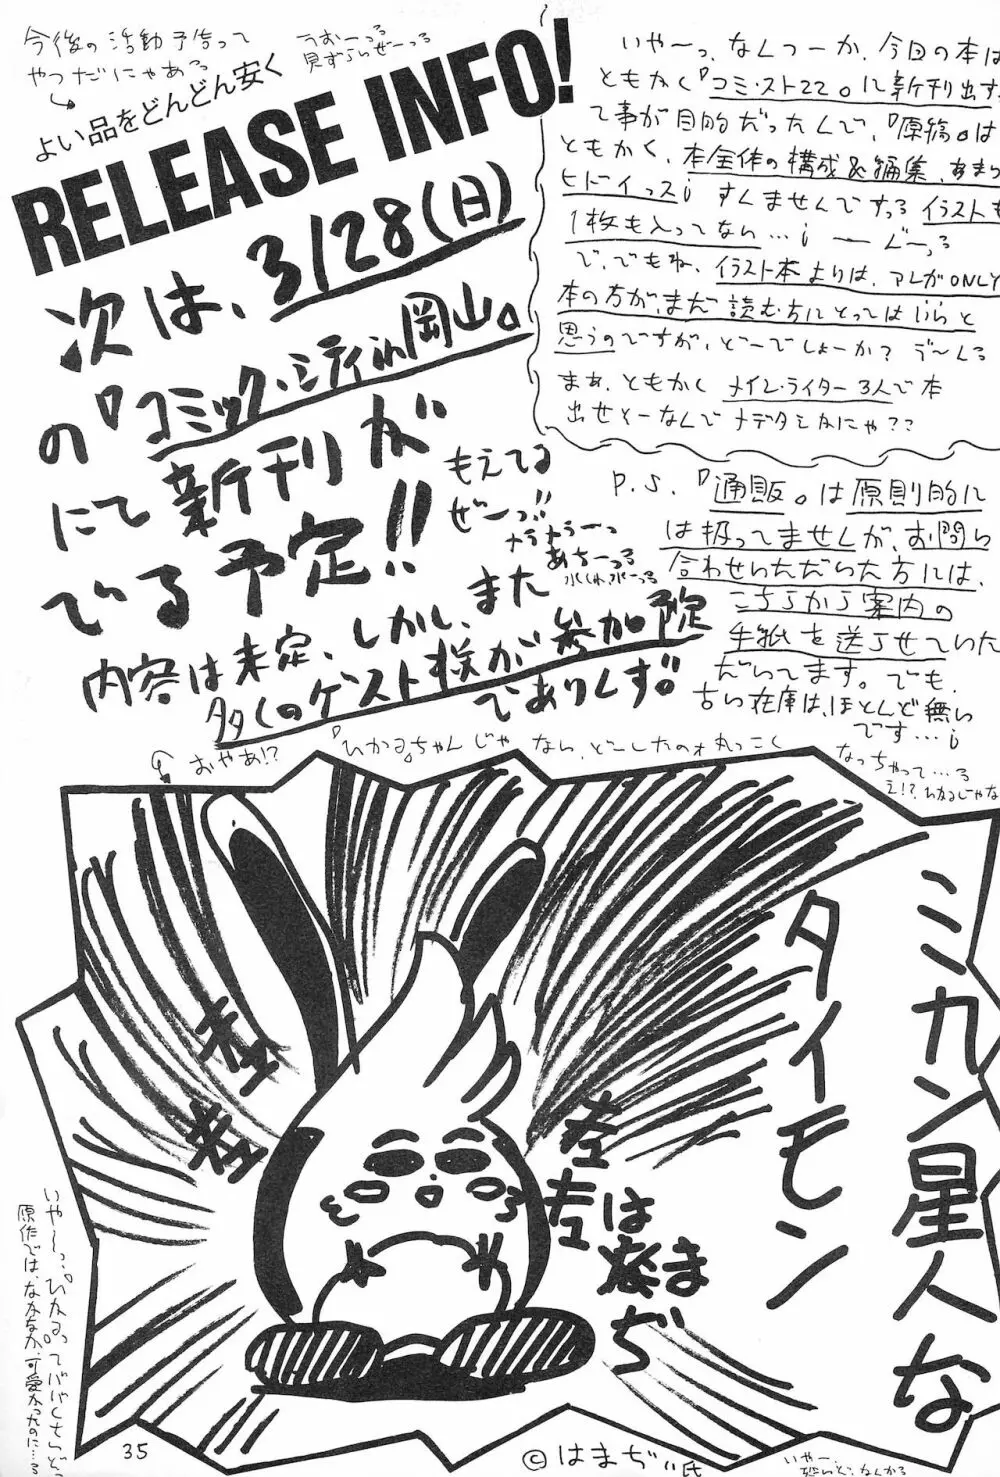 今後の活動予告って
やつだにゃある
うおーっる
見ずらいぜーっる
よい品をどんどん安く
RELEASE INFO!
次は、3/28(日)
の『コミック・シティin岡山』
にて新刊が
でいる予定!!
もえてる
ぜーっ!!
あちーっる
内容は未定、しかし、また
多くのゲスト様が参加予定
でありんす。
いやーっ、なんつーか、今日の本は
ともかく『コミ・スト22』に新刊出す
て事が目的だったんで、『原稿』は
ともかく、本全体の構成&編集、あまり
ヒドイっスi すんませんですっる イラストも
1枚も入ってない…i
で、でもね、イラスト本よりは、アレがONLY
本の方が、まだ読む方にとってはいいと
思うのですが、どーでしょーか?
まぁ、ともかく メイン・ライター3人で本
出せそーなんで メデタシかにゃ??
P.S.『通販』は原則的に
は扱ってませんが、お問い
合わせいただいた方には、
こちらから案内の
手紙を送らせていた
だいてます。でも、
古い在庫は、ほとんど無い
です…i
おやあ!?
『ひかる』ちゃんじゃない、どーしたのォ 丸っこく
なっちゃって…る
え!?ひかるじゃな
ミカン星人な
タイモン
はまぢ
いやーっ、『ひかる』って
原作では、なかなか、可愛かったのに…る
35
©はまぢぃ氏